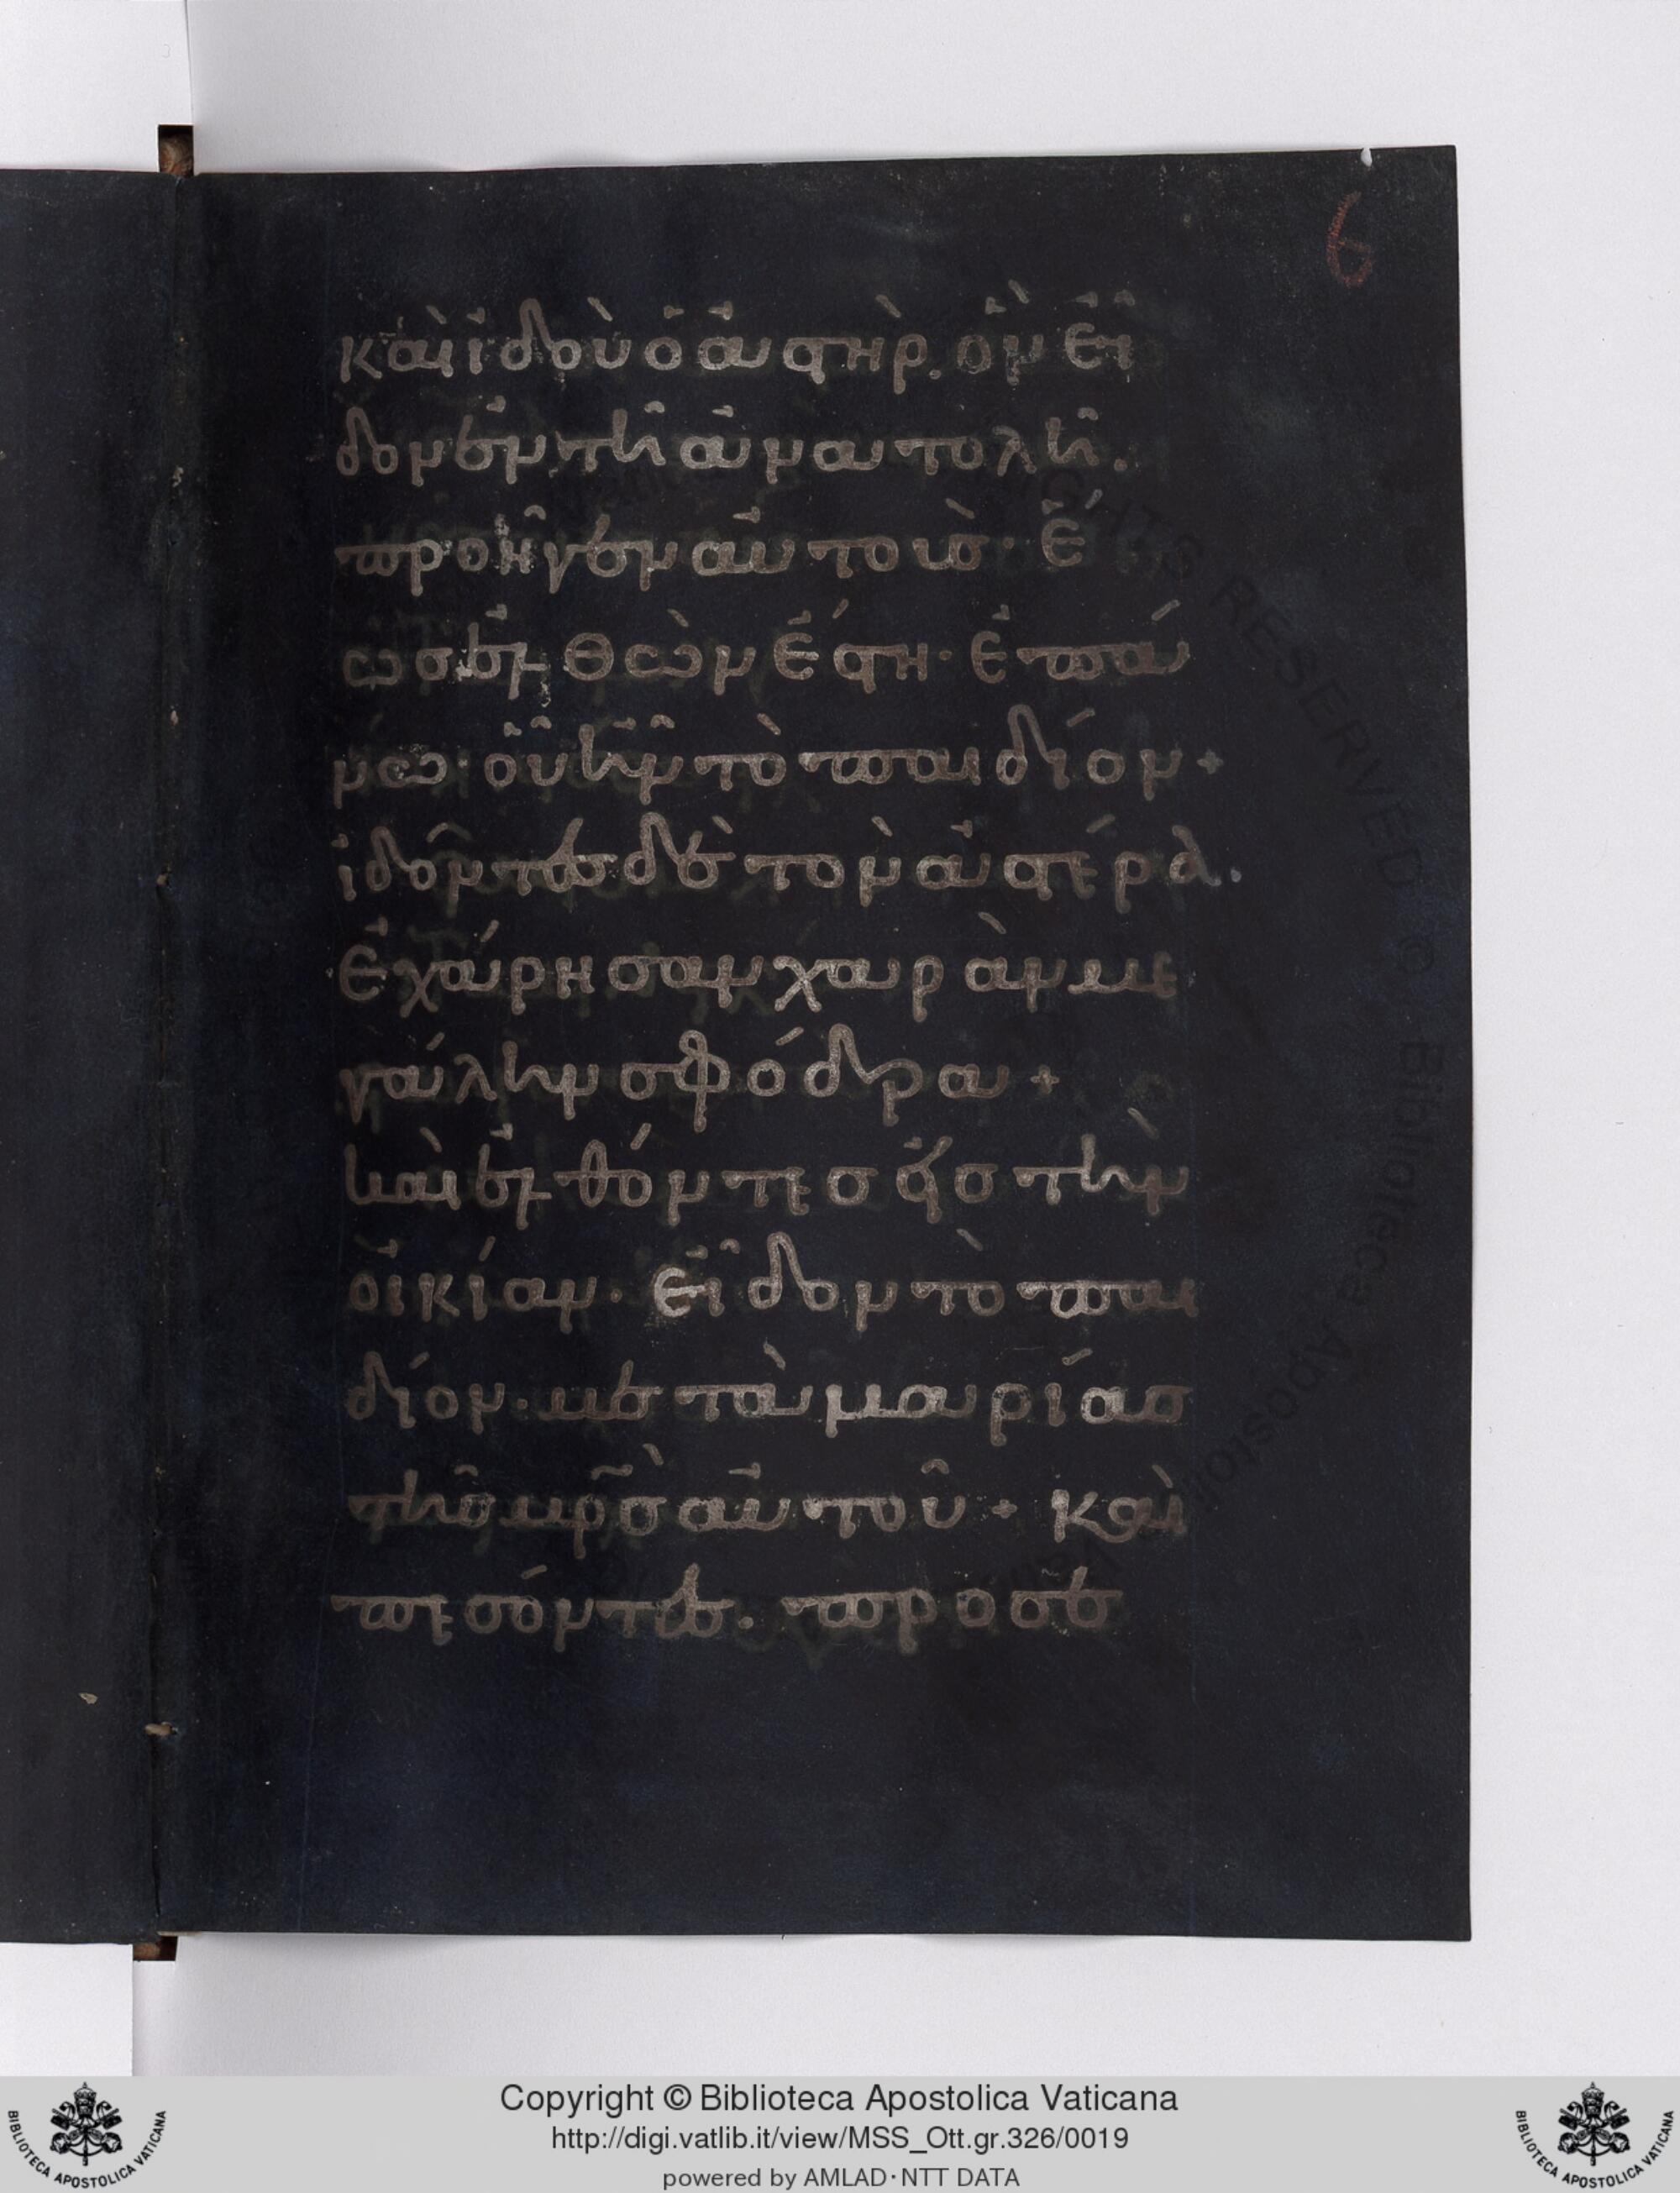 6
καὶ ἰδοὺ ὁ ἀστὴρ. ὃν εἶ
δον ἐν τῆ ἀνατολῆ.
προῆγεν αὐτοὺσ· ἕ
ωσ ἐλθὼν ἔστη· ἐπά
νω· οὗ ἦν τὸ παιδίον +
ἰδόντεσ δὲ τὸν ἀστέρα.
ἐχάρησαν χαρὰν με
γάλην σφόδρα +
καὶ ἐλθόντεσ εἰσ τὴν
οἰκίαν· εἶδον τὸ παι
δίον· μετὰ μαρίασ
τῆσ μρ̅σ αὐτοῦ + καὶ
πεσόντεσ. προσε
RIGHTS RESERVED © Biblioteca Apostolica Vaticana
Copyright © Biblioteca Apostolica Vaticana
http://digi.vatlib.it/view/MSS_Ott.gr.326/0019
powered by AMLAD·NTT DATA
BIBLIOTECA APOSTOLICA VATICANA
BIBLIOTECA APOSTOLICA VATICANA